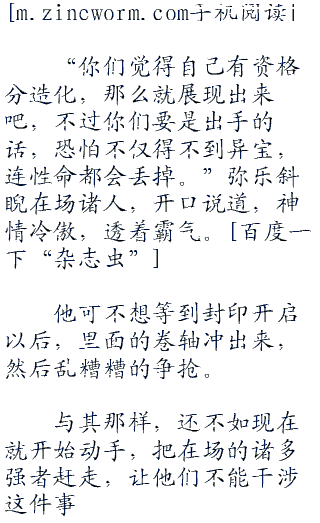 [m.zincworm.com手机阅读i
“你们觉得自己有资格
分造化，那么就展现出来
吧，不过你们要是出手的
话，恐怕不仅得不到异宝，
连性命都会丢掉。”弥乐斜
睨在场诸人，开口说道，神
情冷傲，透着霸气。[百度一
下“杂志虫”]
他可不想等到封印开启
以后，里面的卷轴冲出来，
然后乱糟糟的争抢。
与其那样，还不如现在
就开始动手，把在场的诸多
强者赶走，让他们不能干涉
这件事